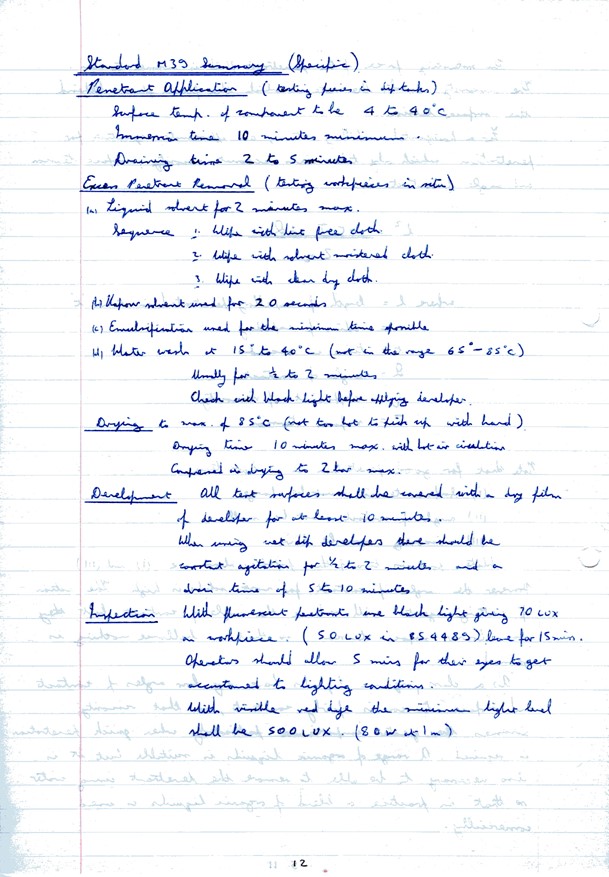 Standard M39 Summary (Specific)
Penetrant Application (testing pieces in dip tanks)
Surface temp. of component to be 4 to 40°C
Immersion time 10 minutes minimum.
Draining time 2 to 5 minutes
Excess Penetrant Removal (testing workpieces in situ)
(a) Liquid solvent for 2 minutes max.
Sequence 1. Wipe with lint free cloth.
2. Wipe with solvent moistened cloth.
3. Wipe with clean dry cloth.
(b) Vapour solvent used for 20 seconds
(c) Emulsification used for the minimum time possible
(d) Water wash at 15° to 40°C (not in the range 65°-85°C)
Usually for ½ to 2 minutes
Check with black light before applying developer.
Drying to max. of 85°C (not too hot to pick up with hand)
Drying time 10 minutes max. with hot air circulation
Compressed air drying to 2 bar max.
Development All test surfaces shall be covered with a dry film
of developer for at least 10 minutes.
When using wet dip developers there should be
constant agitation for ½ to 2 minutes and a
drain time of 5 to 10 minutes
Inspection With fluorescent penetrants use black light giving 70 LUX
on workpiece. (50 LUX in BS4489) leave for 15 mins.
Operators should allow 5 mins for their eyes to get
accustomed to lighting conditions.
With visible red dye the minimum light level
shall be 500 LUX. (80W at 1m)
12